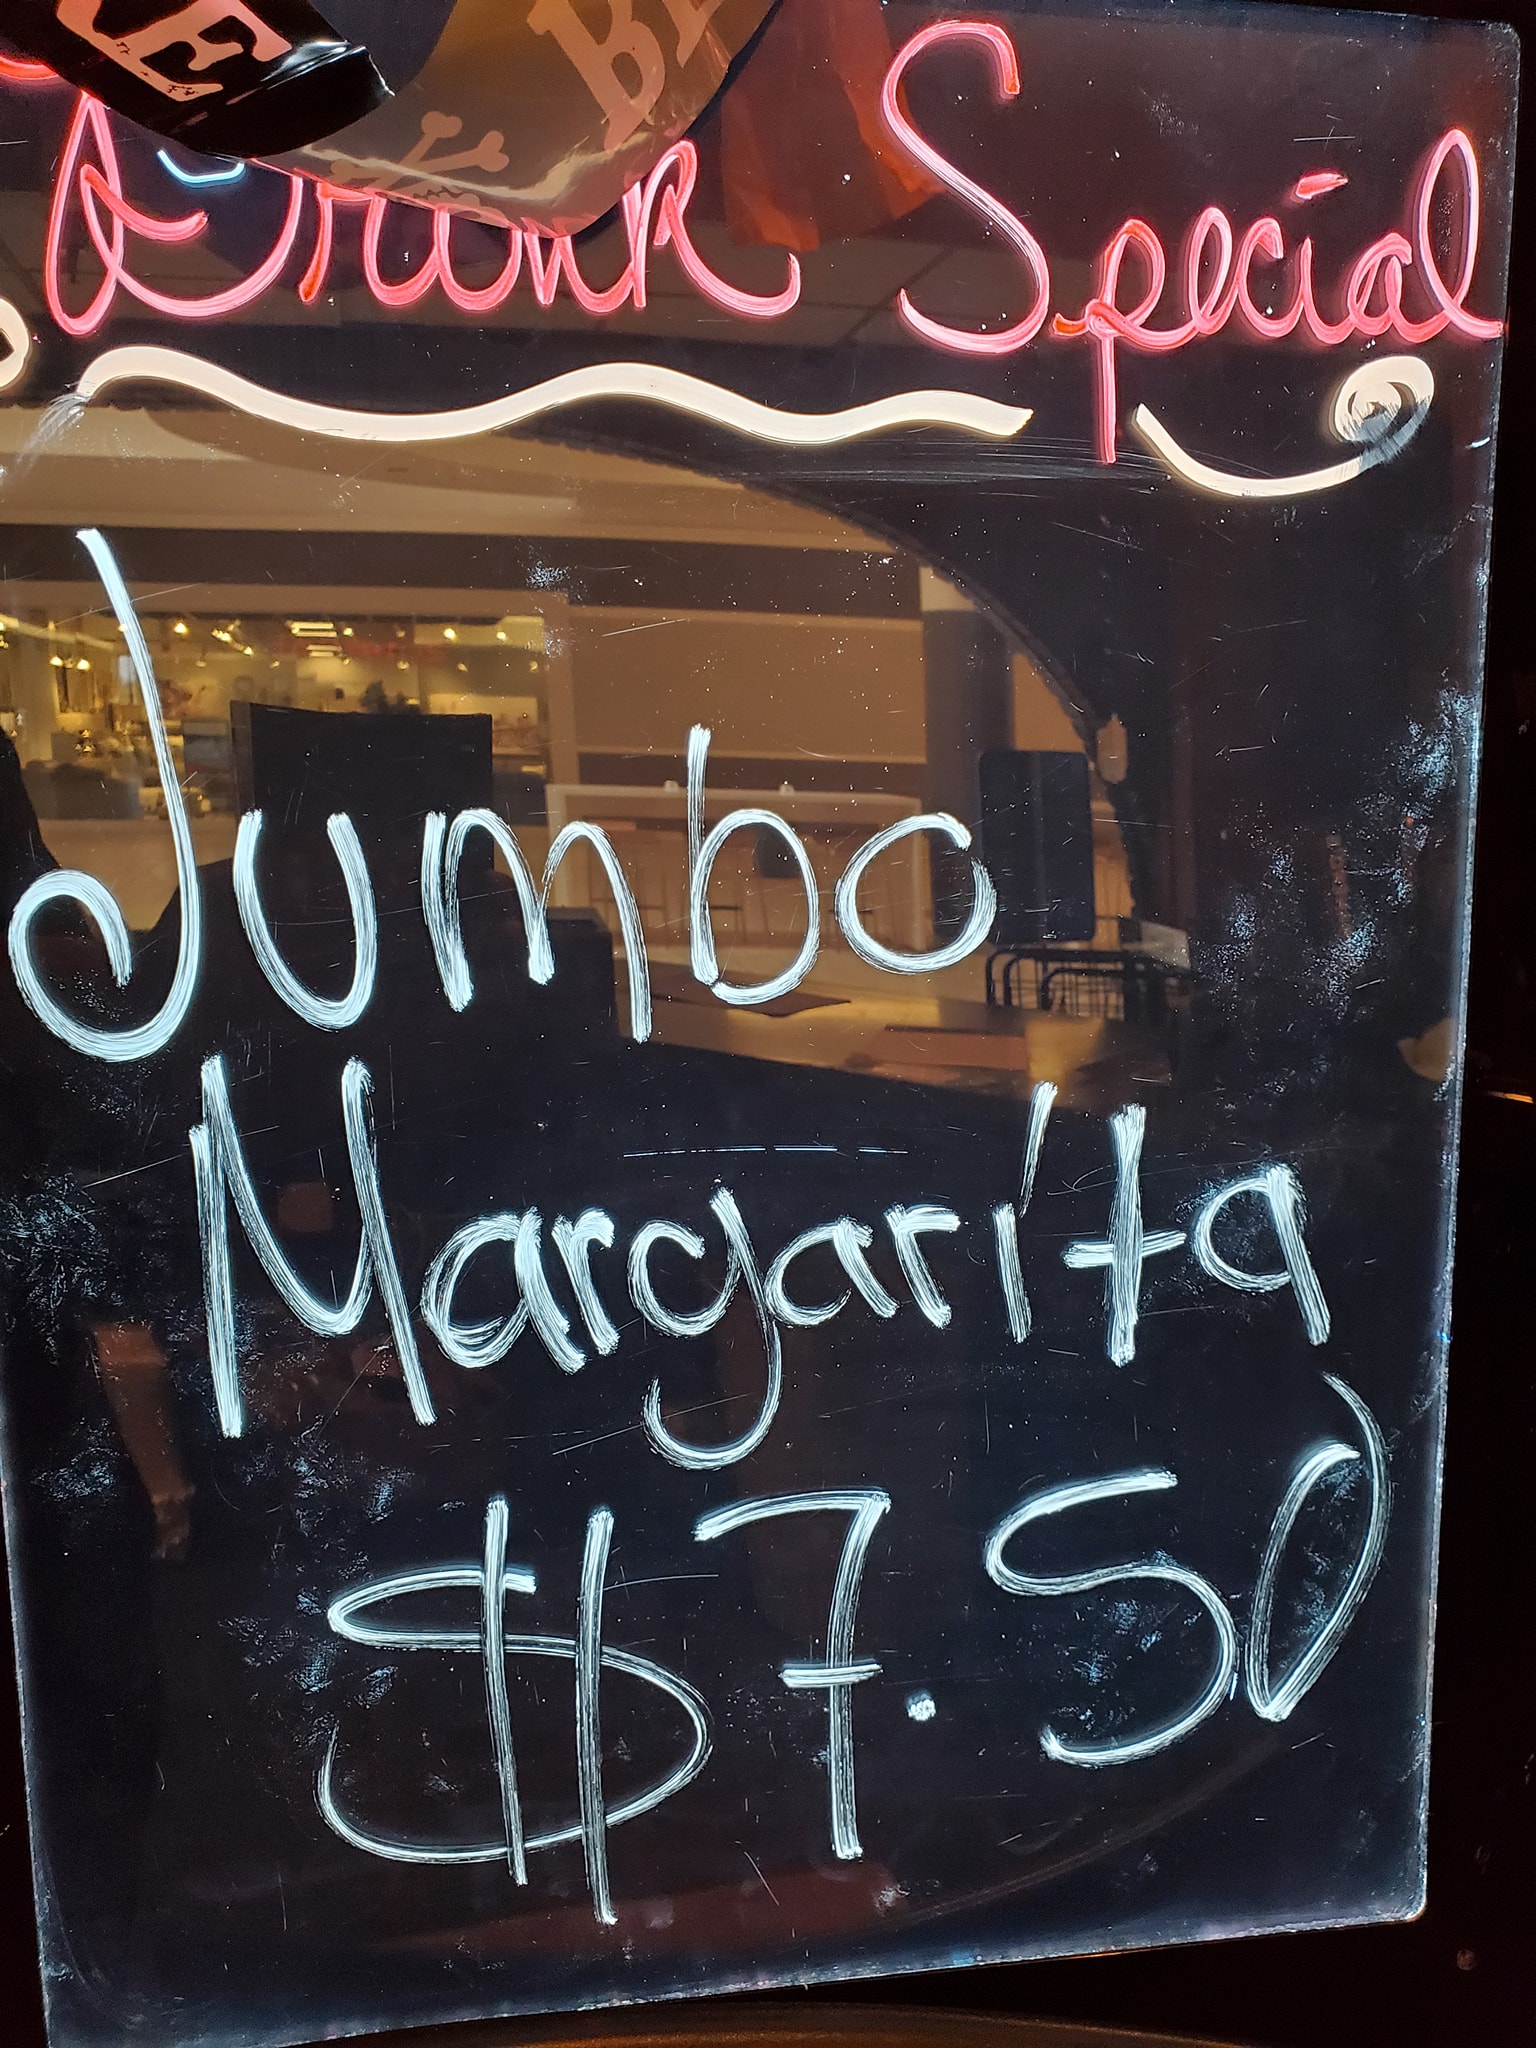 Drink Special
Jumbo
Margarita
$7.50